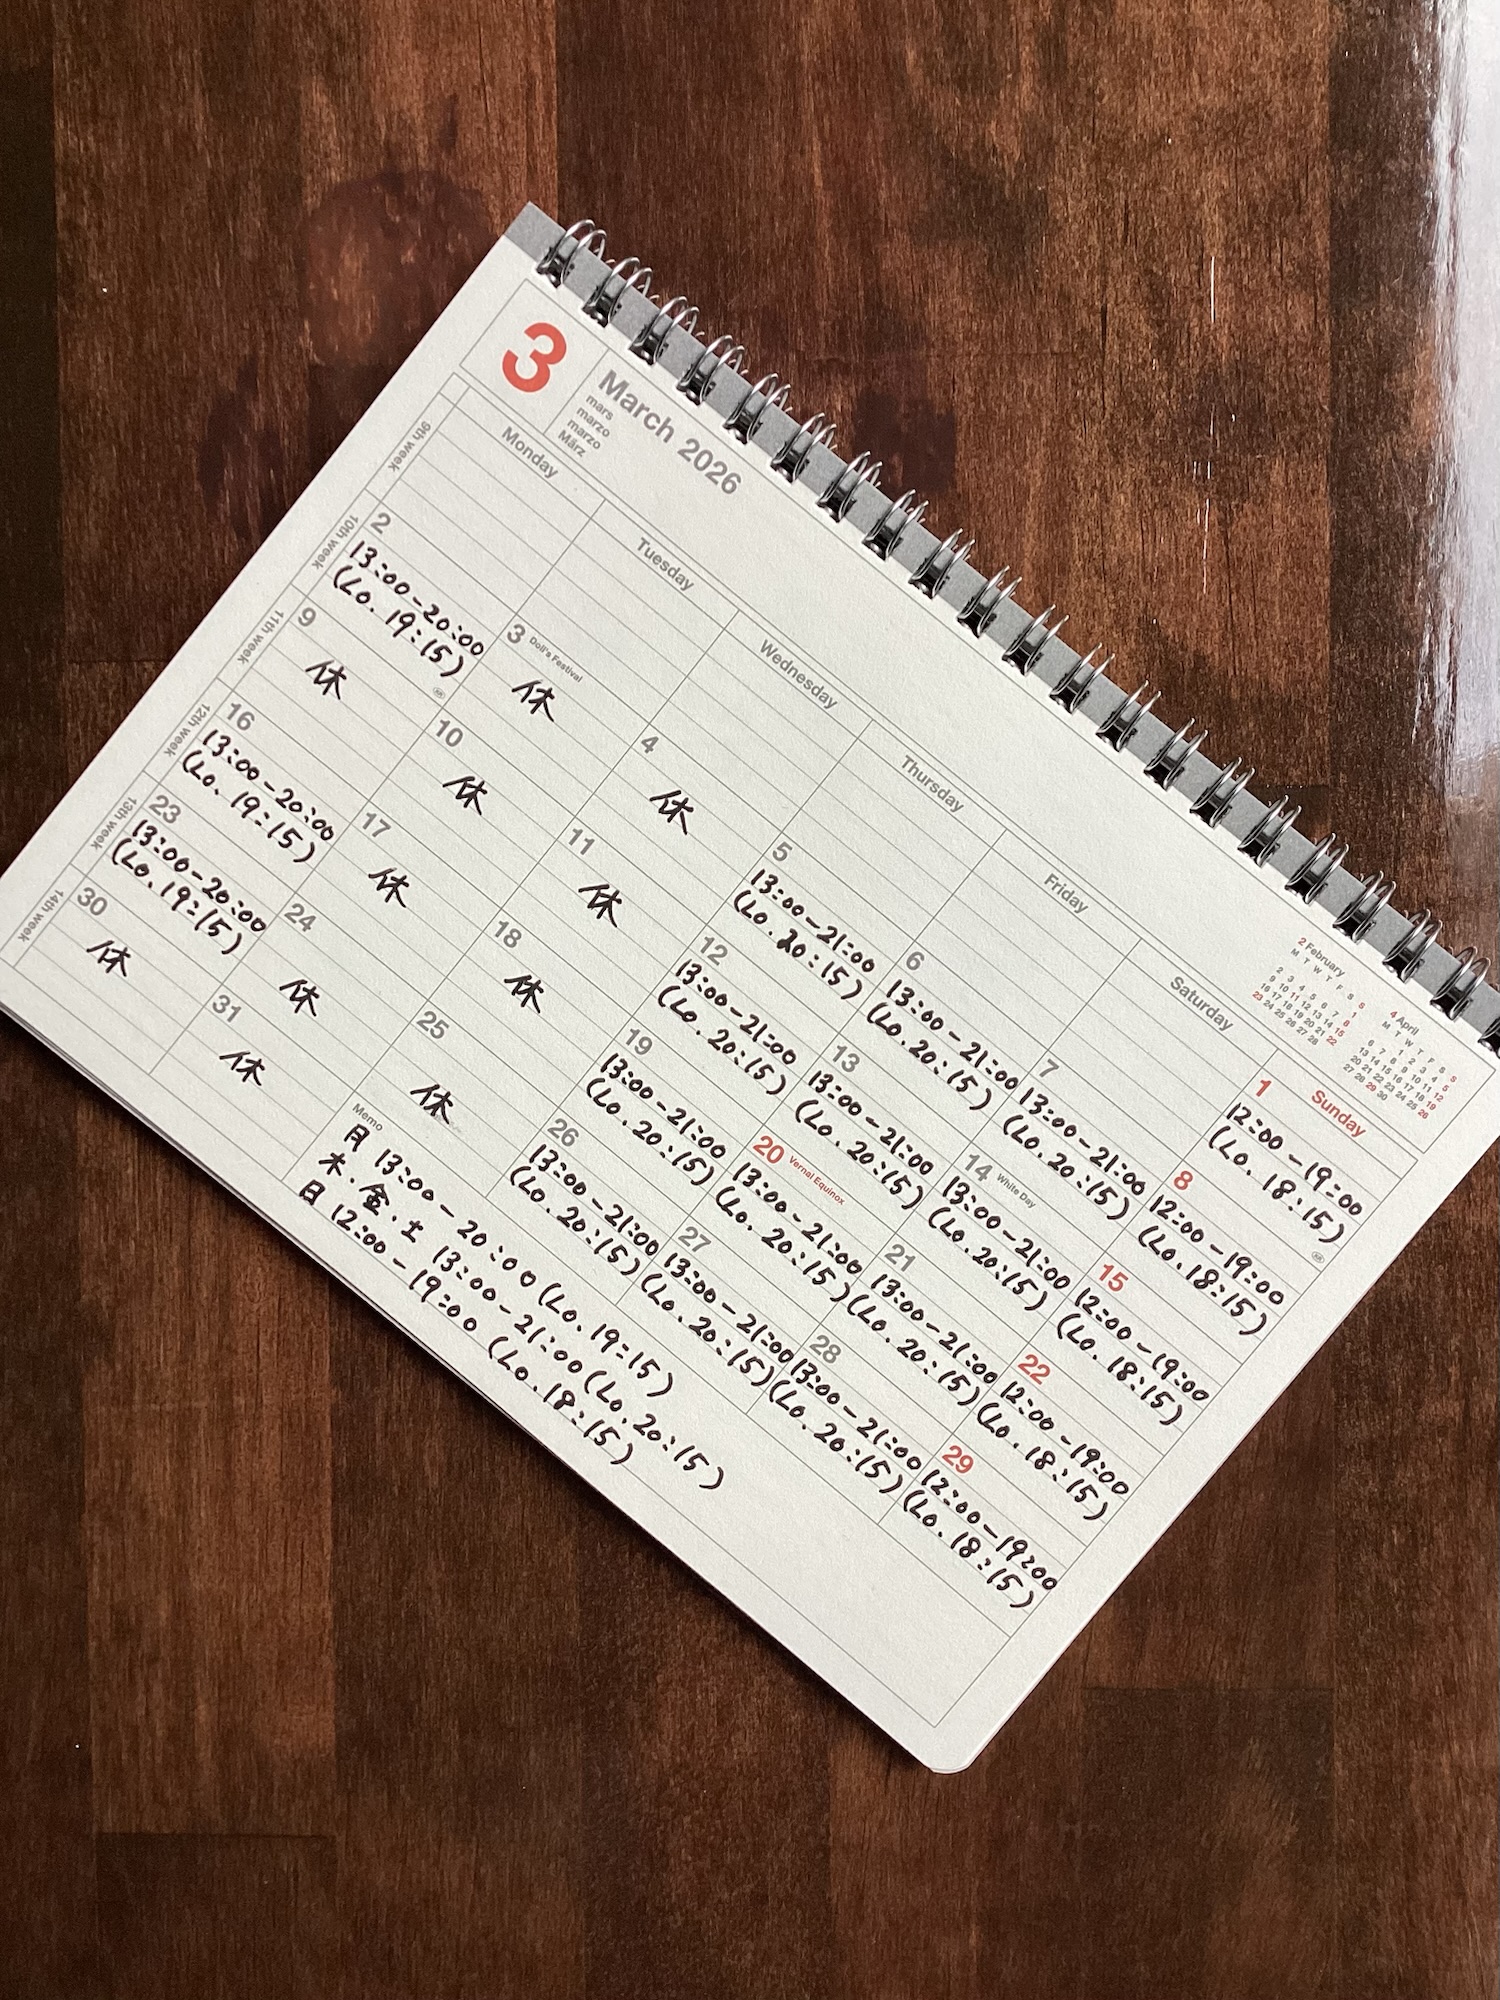 3
March 2026
mars
marzo
marzo
März
2 February
M T W T F S S
1
2 3 4 5 6 7 8
9 10 11 12 13 14 15
16 17 18 19 20 21 22
23 24 25 26 27 28
4 April
M T W T F S S
1 2 3 4 5
6 7 8 9 10 11 12
13 14 15 16 17 18 19
20 21 22 23 24 25 26
27 28 29 30
Monday Tuesday Wednesday Thursday Friday Saturday Sunday
9th week
1
12:00-19:00
(Lo. 18:15)
10th week
2
13:00-20:00
(Lo. 19:15)
3 Doll's Festival
休
4
休
5
13:00-21:00
(Lo. 20:15)
6
13:00-21:00
(Lo. 20:15)
7
13:00-21:00
(Lo. 20:15)
8
12:00-19:00
(Lo. 18:15)
11th week
9
休
10
休
11
休
12
13:00-21:00
(Lo. 20:15)
13
13:00-21:00
(Lo. 20:15)
14 White Day
13:00-21:00
(Lo. 20:15)
15
12:00-19:00
(Lo. 18:15)
12th week
16
13:00-20:00
(Lo. 19:15)
17
休
18
休
19
13:00-21:00
(Lo. 20:15)
20 Vernal Equinox
13:00-21:00
(Lo. 20:15)
21
13:00-21:00
(Lo. 20:15)
22
12:00-19:00
(Lo. 18:15)
13th week
23
13:00-20:00
(Lo. 19:15)
24
休
25
休
26
13:00-21:00
(Lo. 20:15)
27
13:00-21:00
(Lo. 20:15)
28
13:00-21:00
(Lo. 20:15)
29
12:00-19:00
(Lo. 18:15)
14th week
30
休
31
休
Memo
月 13:00-20:00 (Lo. 19:15)
木・金・土 13:00-21:00 (Lo. 20:15)
日 12:00-19:00 (Lo. 18:15)